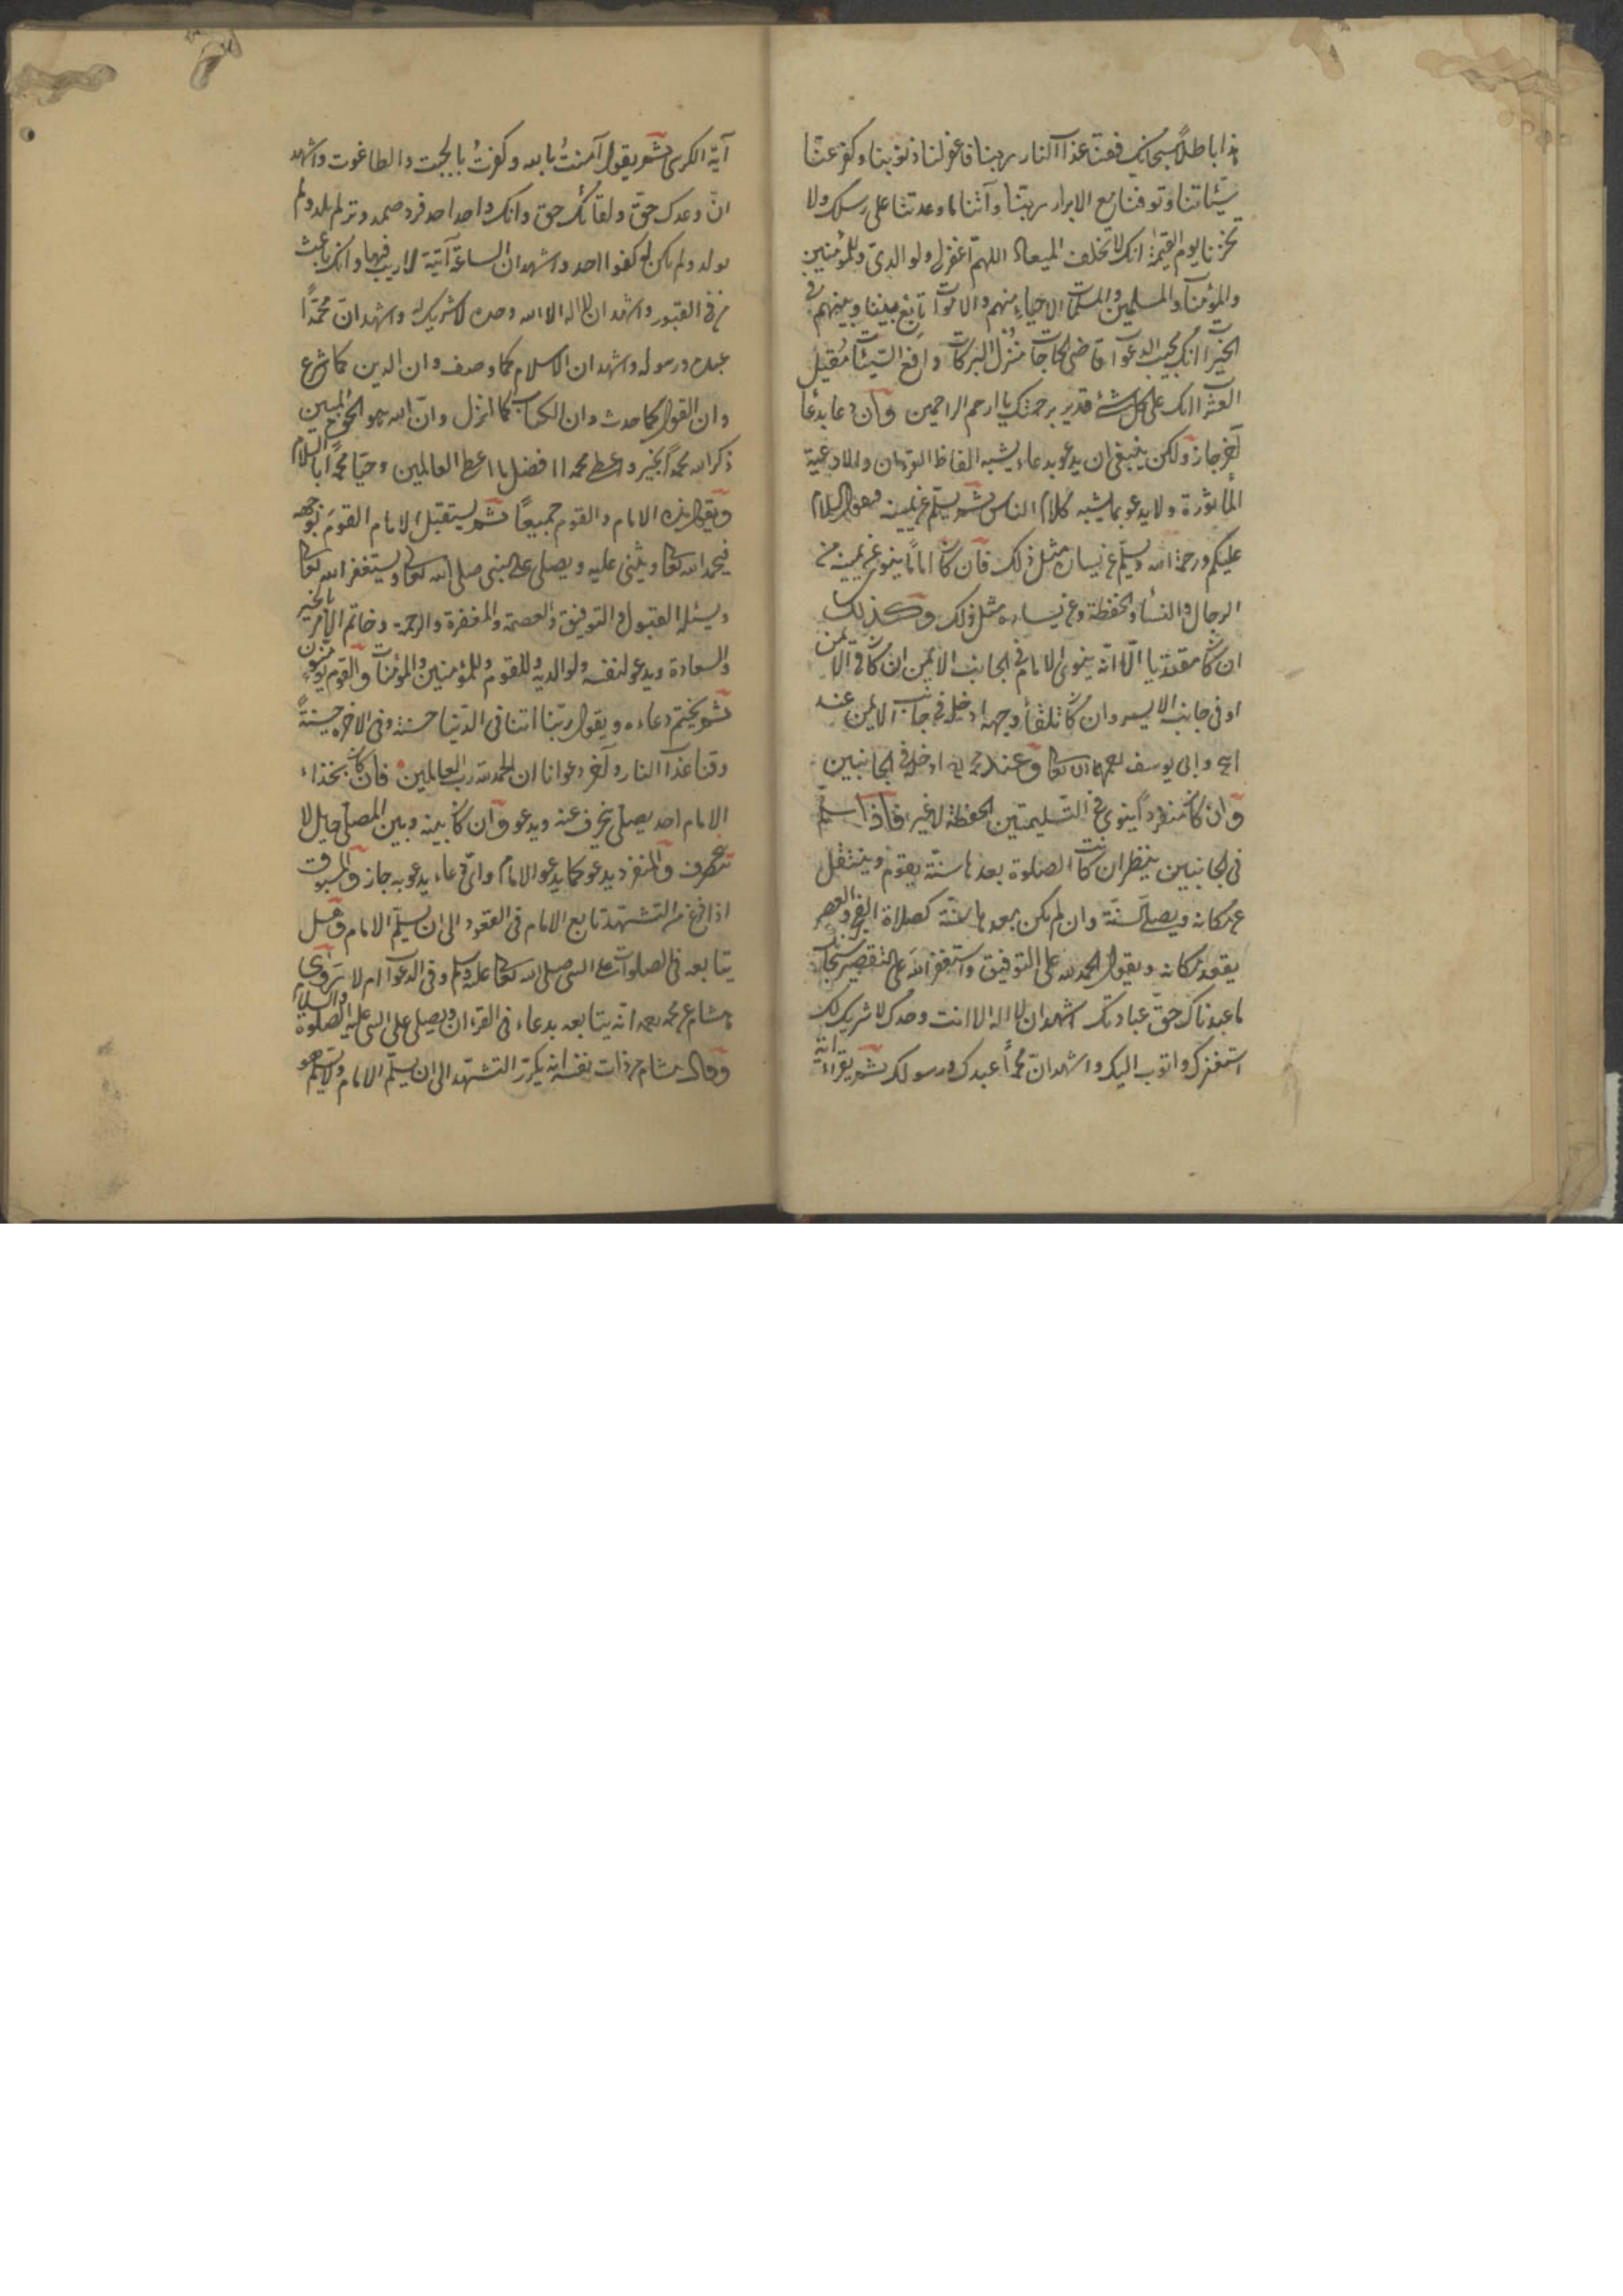 هذا باطلاً سبحانك فقنا عذاب النار ربنا فاغفر لنا ذنوبنا وكفر عنّا
سيّئاتنا وتوفنا مع الابرار ربّنا وآتنا ما وعدتنا على رسلك ولا
تخزنا يوم القيمة انك لا تخلف الميعاد اللهمّ اغفر لي ولوالديّ وللمؤمنين
والمؤمنات والمسلمين والمسلمات الاحياء منهم والاموات تابع بيننا وبينهم في
الخيرات انك مجيب الدعوات قاضى الحاجات منزل البركات دافع السيّئات مُقيل
العثرات انك على كل شئ قدير برحمتك يا ارحم الراحمين وان دعا بدعاء
آخر جاز ولكن ينبغى ان يدعو بدعاء يشبه الفاظ القران والادعية
المأثورة ولا يدعو بما يشبه كلام الناس ثم يسلّم عن يمينه فيقول السلام
عليكم ورحمة الله ويسلّم عن يساره مثل ذلك فان كان اماما ينوى عن يمينه من
الرجال والنساء والحفظة وعن يساره مثل ذلك وكذلك
ان كان مقتديا الّا انّه ينوى الامام في الجانب الايمن ان كان في الايمن
او في جانبه الايسر وان كان تلقاء وجهه ادخله في جانب الايمن عند
ابي يوسف رحمهما الله تعالى وعند محمد ادخله في الجانبين
وان كان منفرداً ينوى في التسليمتين الحفظة لا غير فاذا سلّم
في الجانبين ينظر ان كانت الصلوة بعدها سنّة يقوم وينتقل
عن مكانه ويصلى السنّة وان لم يكن بعدها سنّة كصلاة الفجر والعصر
يقعد مكانه ويقول الحمد لله على التوفيق واستغفر الله على التقصير سبحانك
ما عبدناك حقّ عبادتك اشهد ان لا اله الا انت وحدك لا شريك لك
استغفرك واتوب اليك واشهد انّ محمداً عبدك ورسولك ثم يقراء آية
آية الكرسى ثم يقول آمنتُ بالله وكفرتُ بالجبت والطاغوت واشهد
انّ وعدك حقّ ولقائك حق وانك واحد احد فرد صمد وتر لم يلد ولم
يولد ولم يكن له كفوا احد واشهد ان الساعة آتية لا ريب فيها وانك باعث
من في القبور واشهد ان لا اله الا الله وحده لا شريك له واشهد انّ محمّداً
عبده ورسوله واشهد ان الاسلام كما وصف وان الدين كما شرع
وان القول كما حدث وان الكتاب كما انزل وانّ الله هو الحق المبين
ذكر الله محمداً بخير واعطى محمدا افضل ما اعطى العالمين وحيّا محمداً بالسلام
ويقول هذه الامام والقوم جميعاً ثم يستقبل الامام القوم بوجهه
فيحمد الله تعالى ويثنى عليه ويصلى على النبى صلى الله تعالى ويستغفر الله تعالى
ويسئله القبول والتوفيق والعصمة والمغفرة والرحمة وخاتم الامر بالخير
والسعادة ويدعو لنفسه ولوالديه وللقوم وللمؤمنين والمؤمنات والقوم يؤمنون
ثم يختم دعاءه ويقول ربّنا اتنا في الدّنيا حسنة وفي الاخرة حسنةً
وقنا عذاب النار وآخر دعوانا ان الحمد لله رب العالمين فان كان بحذاء
الامام احد يصلى ينحرف عنه ويدعو وان كان بينه وبين المصلى حايل لا
ينحرف والمنفرد يدعو كما يدعو الامام واىّ دعاء يدعو به جاز والمسبوق
اذا فرغ من التشهّد تابع الامام في القعود الى ان يسلّم الامام وهل
يتابعه في الصلوات على النبى صلى الله تعالى عليه وسلم وفي الدعوات ام لا رَوى
هشام عن محمد رحمه الله انّه يتابعه بدعاء في القرءان ويصلى على النبى عليه الصلوة والسلام
وقال هشام من ذات نفسه انه يكرّر التشهّد الى ان يسلّم الامام ولا يسلّم هو